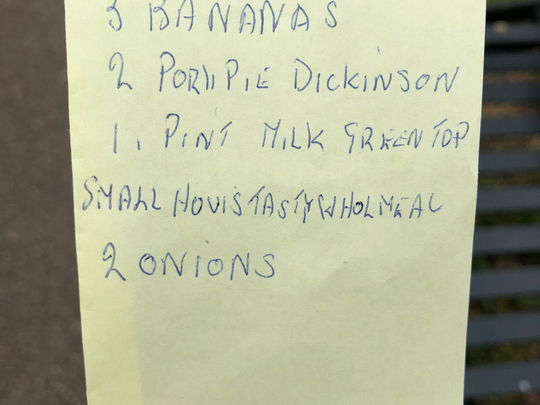 3 BANANAS
2 PORK PIE DICKINSON
1. PINT MILK GREEN TOP
SMALL HOVIS TASTY WHOLMEAL
2 ONIONS